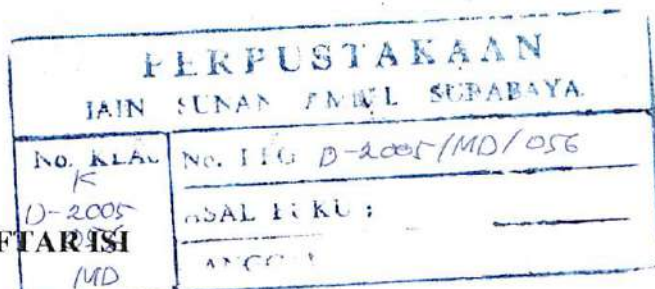 PERPUSTAKAAN
IAIN SUNAN AMPEL SURABAYA
No. KLAS
K
D-2005
056
MD
No. REG D-2005/MD/056
ASAL BUKU :
TANGGAL
FTAR ISI